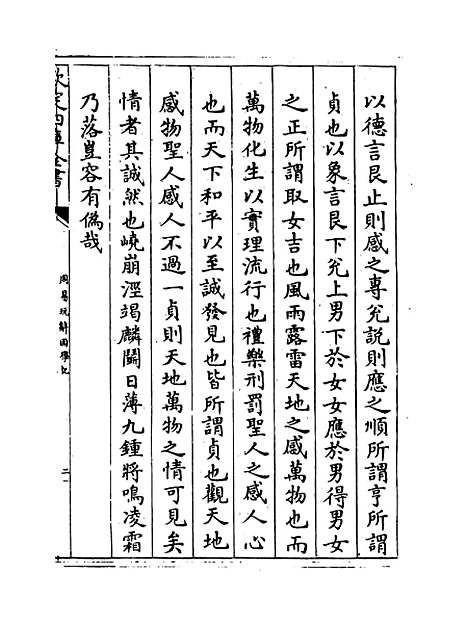 以德言艮止則感之專兊説則應之順所謂亨所謂
貞也以象言艮下兊上男下於女女應於男得男女
之正所謂取女吉也風雨露雷天地之感萬物也而
萬物化生以實理流行也禮樂刑罰聖人之感人心
也而天下和平以至誠發見也皆所謂貞也觀天地
感物聖人感人不過一貞則天地萬物之情可見矣
情者其誠然也嶢崩淫竭麟鬬日薄九鍾將鳴凌霜
乃落豈容有僞哉
欽定四庫全書
周易玩辭困學記